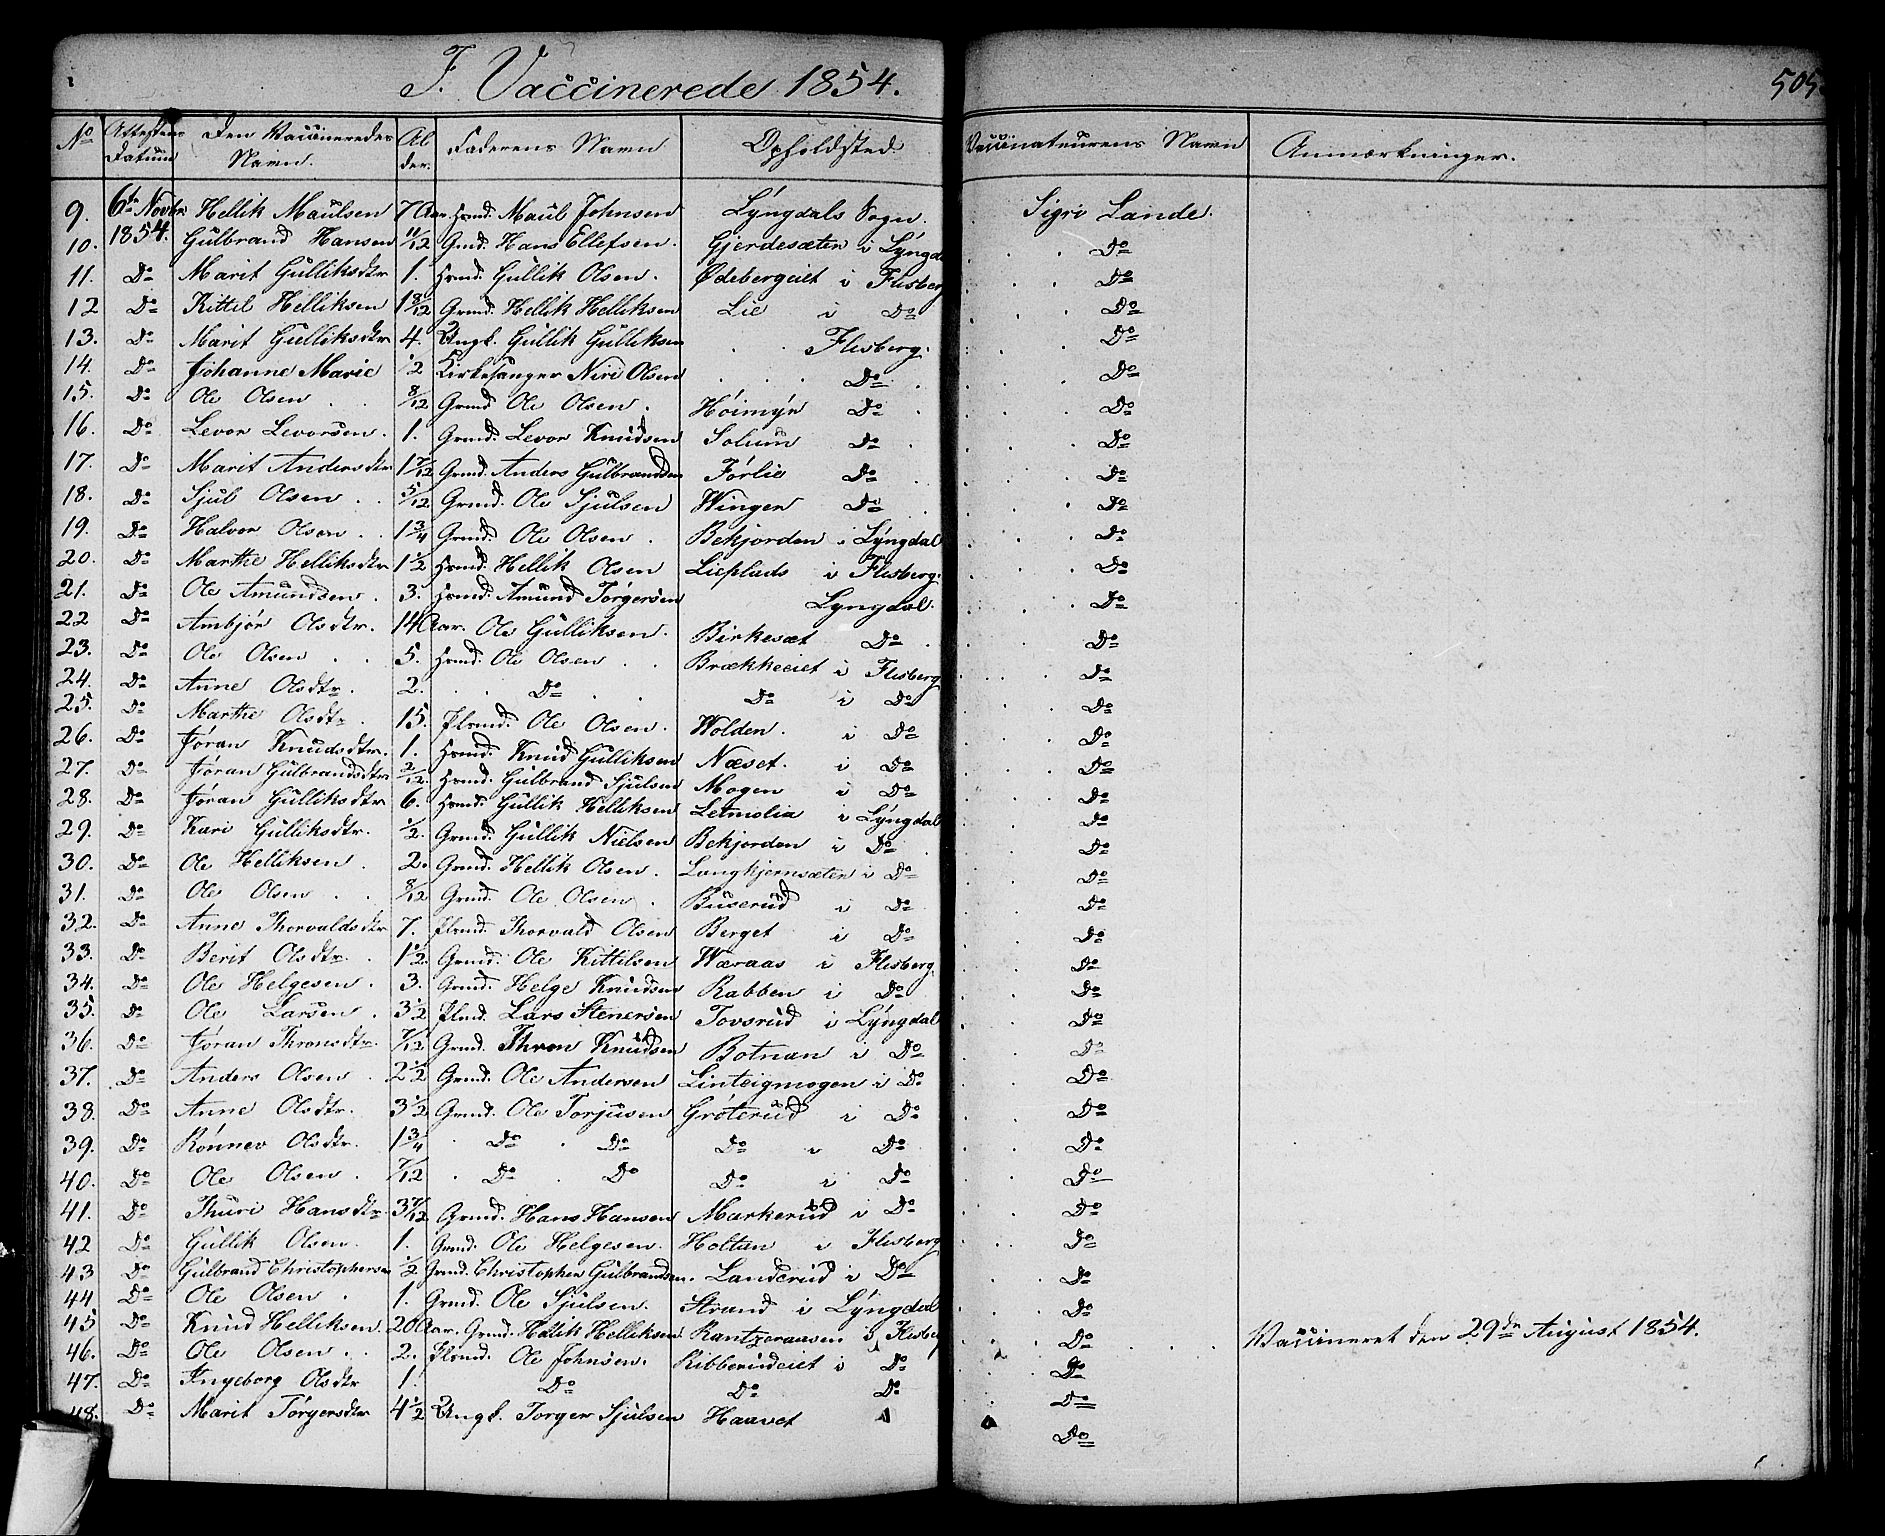 F. Vaccinerede 1854.
505
No Attestens Datum Den Vaccineredes Navn. Alder. Faderens Navn Opholdsted. Vaccinateurens Navn Anmærkninger.
9. 6te Novbr 1854. Hellik Maulsen 7 Aar. Hsmd. Maul Johnsen Lÿngdals Sogn. Sigri Lande.
10. Gülbrand Hansen 11/12 Gmd. Hans Ellefsen. Gjerdesæter i Lÿngd Do
11. Do Marit Gülliksdtr 1. Hsmd. Güllik Olsen. Ødebergeiet i Flesberg Do
12 Do Kittil Helliksen 1 8/12 Grmd. Hellik Helliksen Lie i Do Do
13. Do Marit Gülliksdtr 4. Ungk. Güllik Gülliksen . . Flesberg. Do
14. Do Johanne Marie 1/2 Kirkesanger Niri Olsen . . . Do . Do
15. Do Ole Olsen . . 8/12 Grmd Ole Olsen . Höimÿr Do . Do
16. Do Levor Levorsen. 1. Grmd. Levor Knüdsen Solum Do . Do
17. Do Marit Andersdtr 1 7/12 Grmd. Anders Gülbrandsen Förlie Do . Do
18. Do Sjül Olsen . . 5/12 Grmd. Ole Sjülsen Winger Do . Do
19. Do Halvor Olsen . . 1 3/4 Grmd. Ole Olsen . Bekjorden i Lÿngdal Do
20. Do Marthe Helliksdtr 1 1/2 Hsmd. Hellik Olsen Lieplads i Flesberg. Do
21. Do Ole Amündsen . 3. Hsmd. Amünd Törgersen Lyngdal. Do
22 Do Ambjör Olsdtr. 14 Aar. Ole Gülliksen. Birkesæt Do . Do
23. Do Ole Olsen . . 5. Hsmd. Ole Olsen . . Brækkeeiet i Flesberg Do
24. Do Anne Olsdtr. 2. . . Do . . Do i Do Do
25. Do Marthe Olsdtr . 15. Plsmd. Ole Olsen . Wolden. i Do Do
26. Do Jøran Knüdsdtr. 1. Hsmd. Knüd Gülliksen Næset. i Do Do
27. Do Jøran Gülbrandsdtr 2/12. Hsmd. Gülbrand Sjülsen Mogen i Do Do
28. Do Jøran Gülliksdtr 6. Hsmd. Güllik Helliksen Letmolia i Lÿngdal Do
29. Do Kari Gülliksdtr. 1/2. Grmd. Güllik Nielsen Bekjorden i Do . Do
30. Do Ole Helliksen . 2. Grmd. Hellik Olsen . Langkjernsæter i Do Do
31. Do Ole Olsen . . 8/12 Grmd. Ole Olsen . Büserüd i Do Do
32. Do Anne Thorvaldsdtr 7. Plsmd. Thorvald Olsen Berget i Do Do
33. Do Berit Olsdtr. . 1 1/2. Grmd. Ole Kittilsen Wæraas i Flesberg. Do
34. Do Ole Helgesen . 3. Grmd. Helge Knüdsen Rabben i Do Do
35. Do Ole Larsen . 3 1/2 Plsmd. Lars Stenersen Tovsrüd i Lÿngdal Do
36. Do Jøran Thronsdtr. 7/12 Grmd. Thron Knüdsen Botnan i Do Do
37. Do Anders Olsen . 2 1/2 Grmd. Ole Andersen Linteigmogen i Do Do
38. Do Anne Olsdtr. 3 1/2 Grmd. Ole Torjüsen Gröterüd i Do Do
39. Do Rönnev Olsdtr. 1 3/4 . Do . Do Do i Do Do
40. Do Ole Olsen . 7/12 . Do . Do Do i Do Do
41. Do Thüri Hansdtr 3 7/12 Grmd. Hans Hansen Markerüd i Do Do
42 Do Güllik Olsen. 1. Grmd. Ole Helgesen. Holtan i Flesberg Do
43 Do Gülbrand Christophersen 1/2 Grmd. Christopher Gülbrandsen. Landerüd i Do Do
44 Do Ole Olsen . 1. Grmd. Ole Sjülsen. Strand i Lÿngdal Do
45 Do Knüd Helliksen. 20 Aar. Grmd. Hellik Helliksen Rantzeraasen i Flesberg Do . . . Vaccineret den 29de August 1854.
46. Do Ole Olsen . . 2. Plsmd. Ole Johnsen. Ribberüdeiet i Do Do
47. Do Ingeborg Olsdtr 1. Do Do Do Do
48. Do Marit Törgersdtr 4 1/2 Ungk. Torger Sjülsen Haavet Do